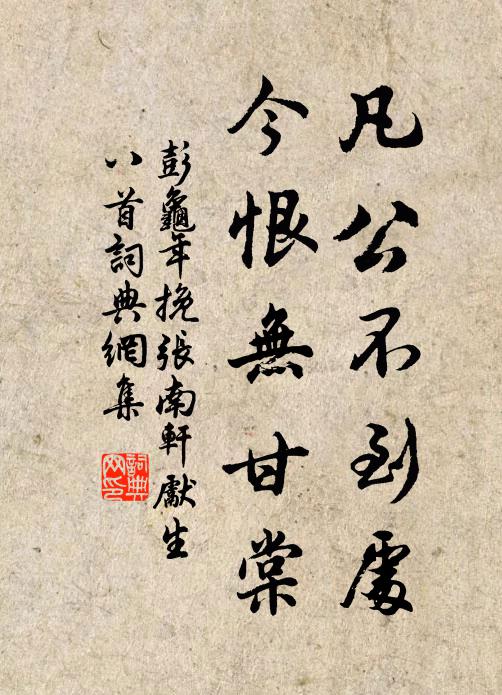 凡公不到處
今恨無甘棠
彭龜年挽張南軒獻生
八首詞典網集
詞典
网印